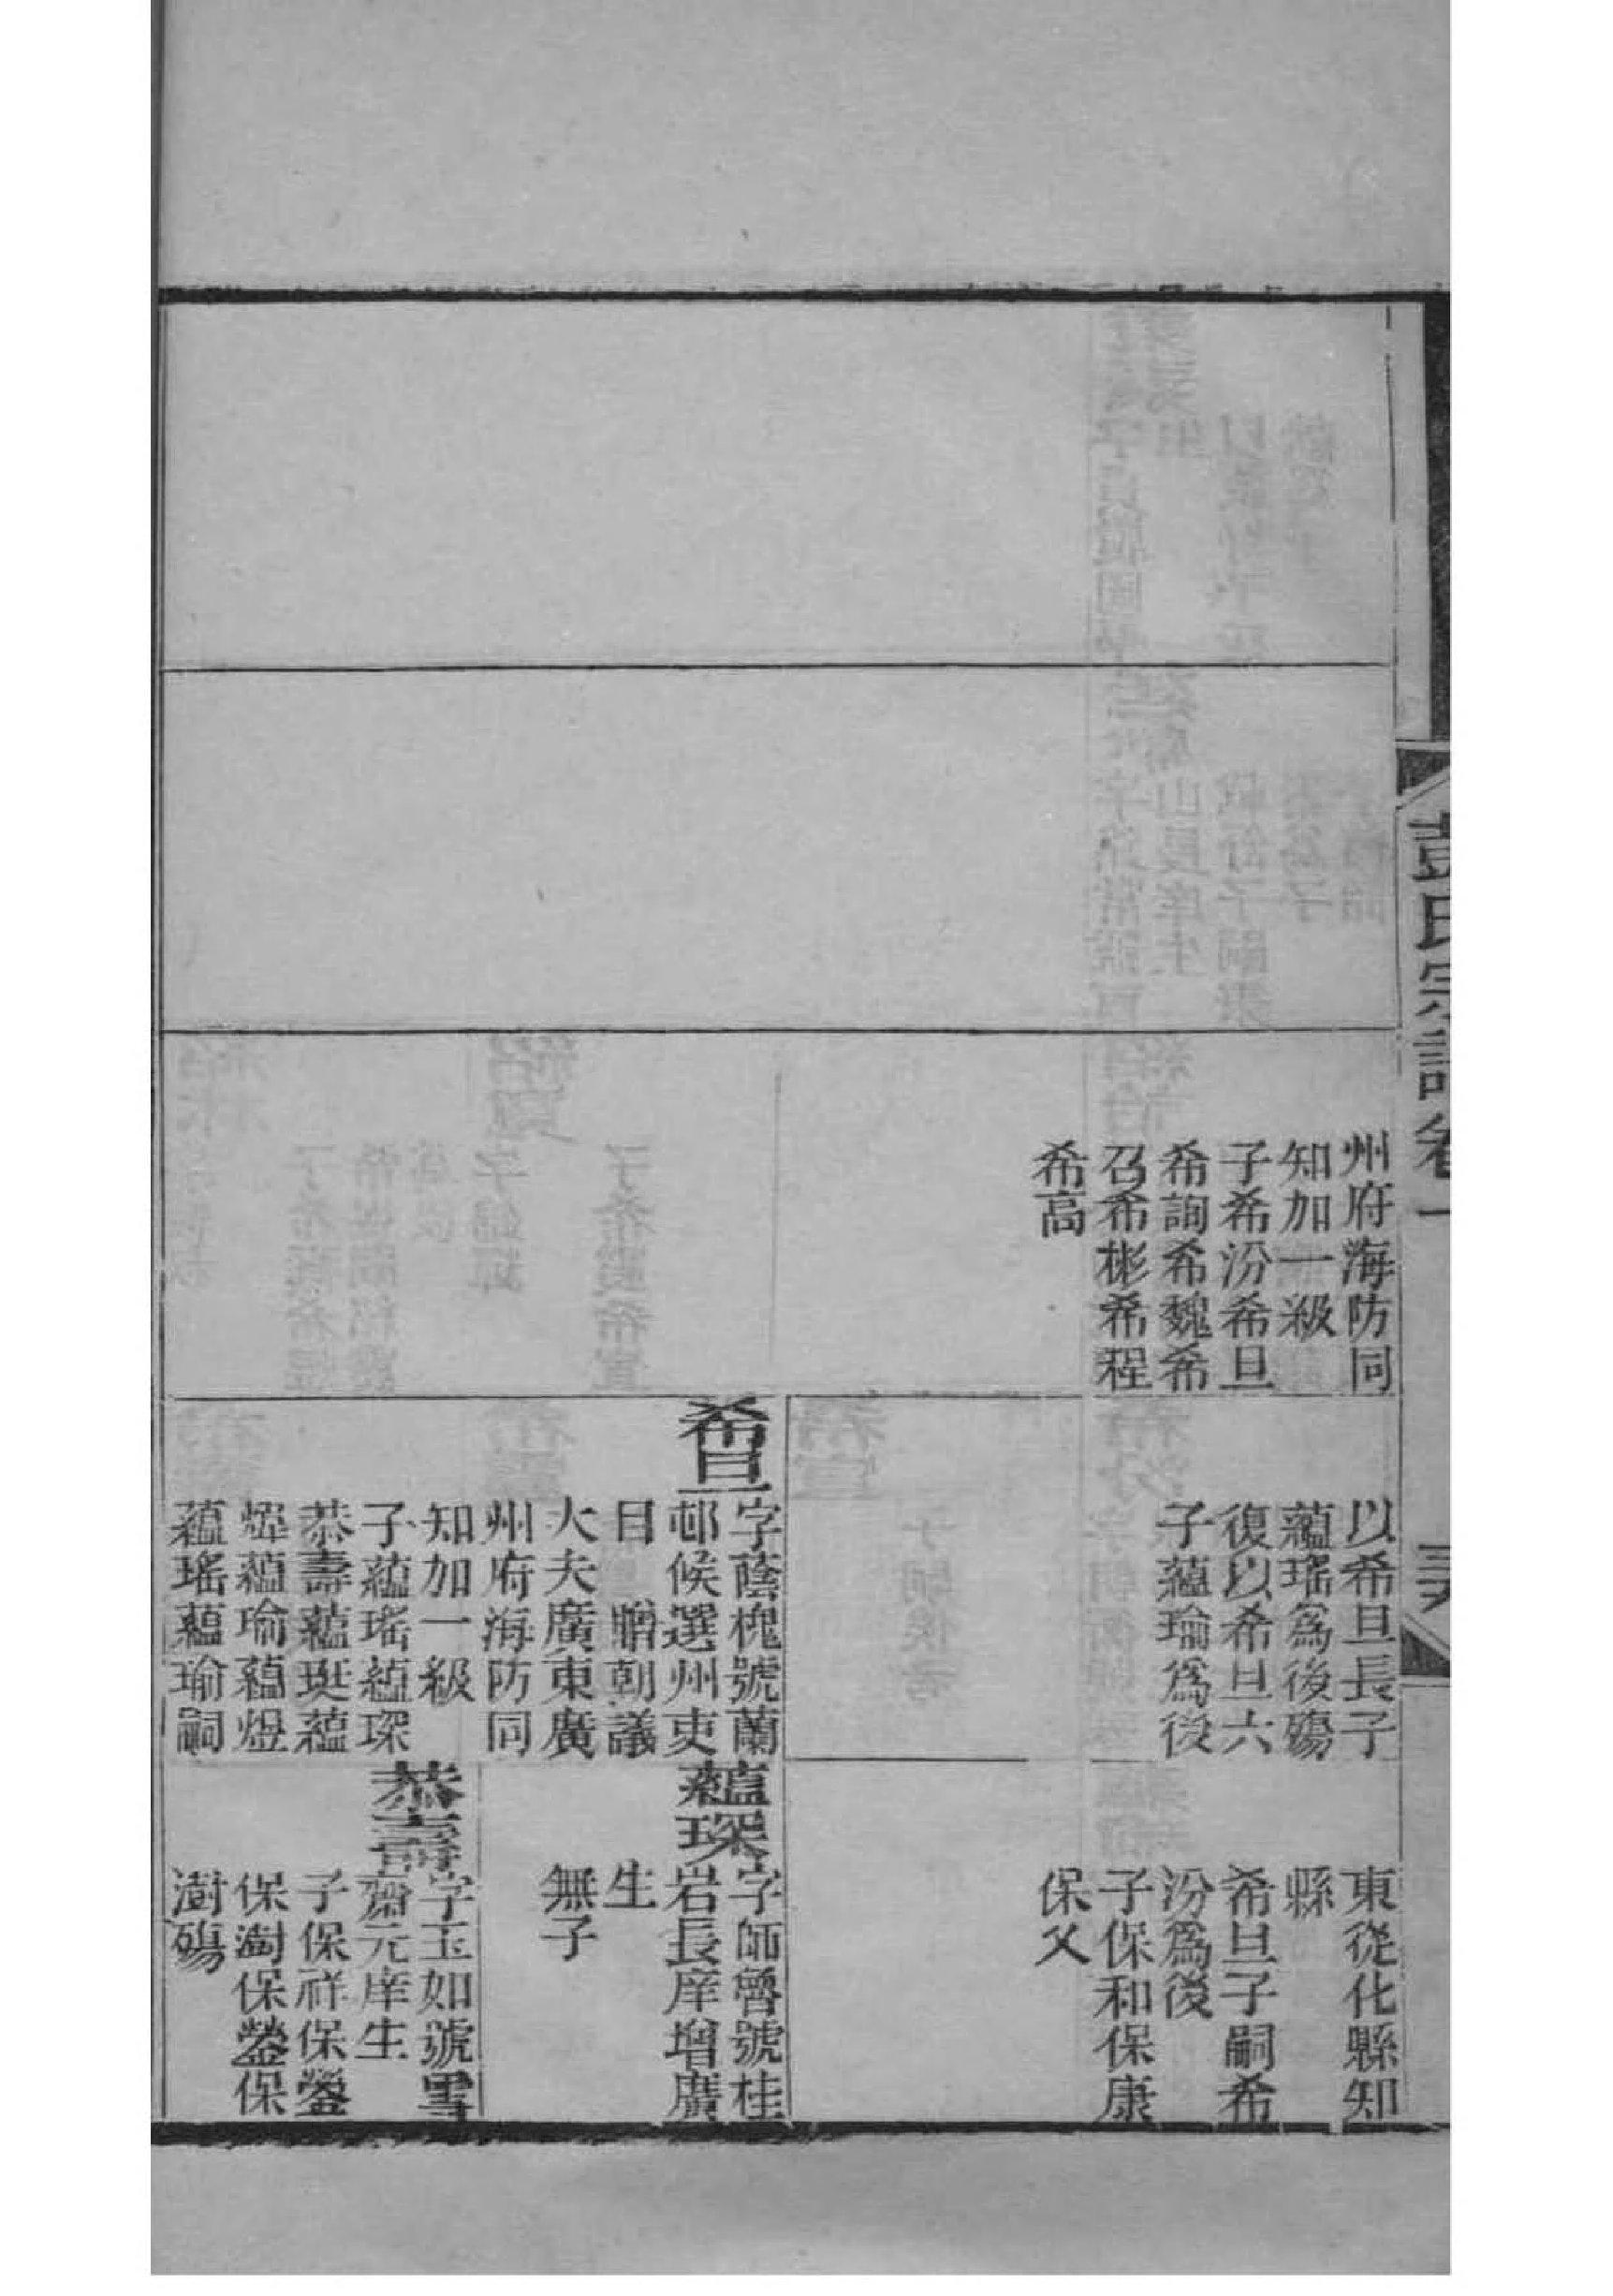 彭氏宗譜卷一
三六
州府海防同
知加一級
子希汾希旦
希詢希魏希
召希彬希程
希高
以希旦長子
蘊瑤為後殤
復以希旦六
子蘊瑜為後
東從化縣知
縣
希旦子嗣希
汾為後
子保和保康
保父
希旦
字蔭槐號蘭
邨候選州吏
目 贈朝議
大夫廣東廣
州府海防同
知加一級
子蘊瑤蘊琛
恭壽蘊珽蘊
㷉蘊瑜蘊煜
蘊瑤蘊瑜嗣
蘊琛
字師魯號桂
岩長庠增廣
生
無子
恭壽
字玉如號雪
齋元庠生
子保祥保鎣
保澍保鎣保
澍殤